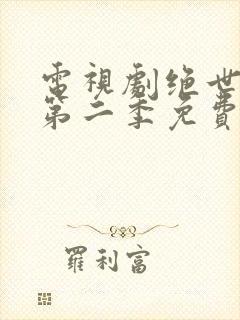 電視劇绝世
第二季免費
羅利富